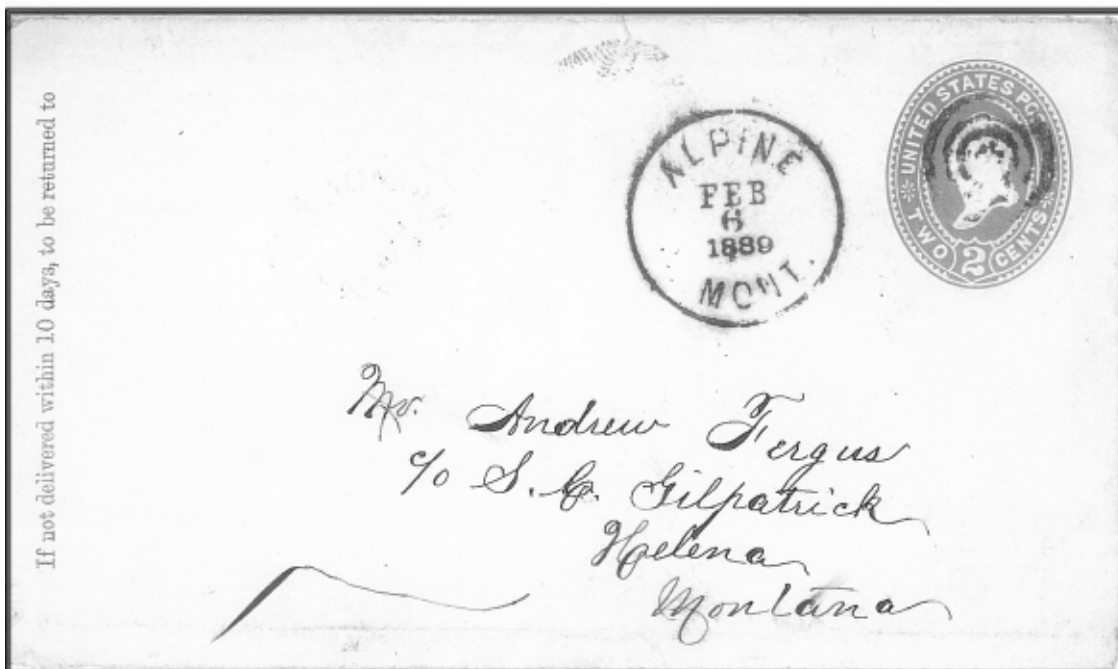 If not delivered within 10 days, to be returned to
ALPINE
FEB
6
1889
MONT.
UNITED STATES
TWO 2 CENTS
Mr. Andrew Fergus
c/o S. C. Gilpatrick
Helena
Montana